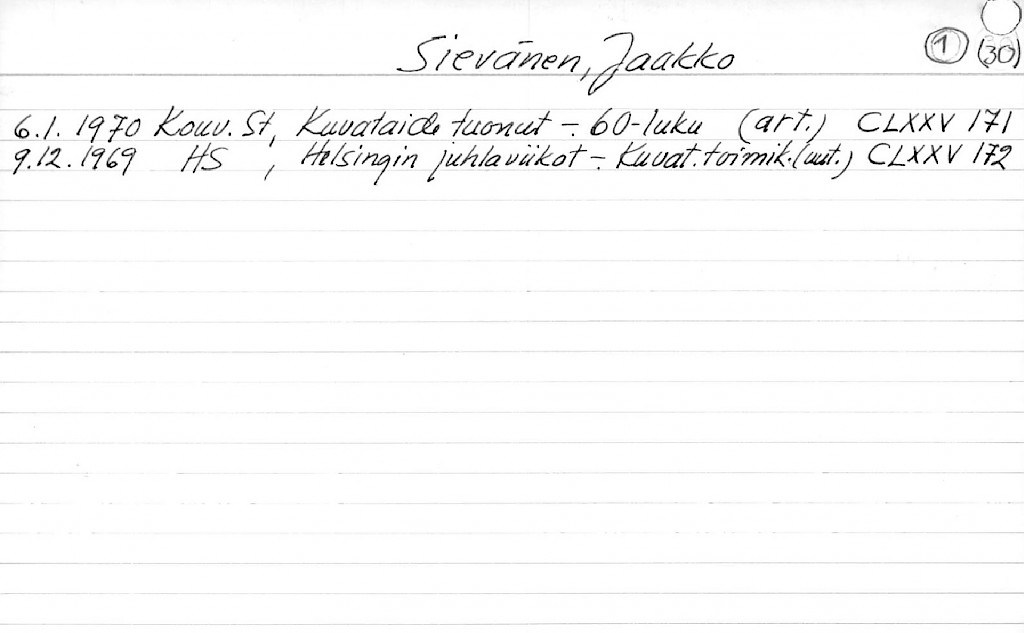 Sievänen, Jaakko 1 (30)
6.1.1970 Kouv. St, Kuvataide tuonut - 60-luku (art.) CLXXV 171
9.12.1969 HS , Helsingin juhlaviikot - Kuvat.toimik.(uut.) CLXXV 172